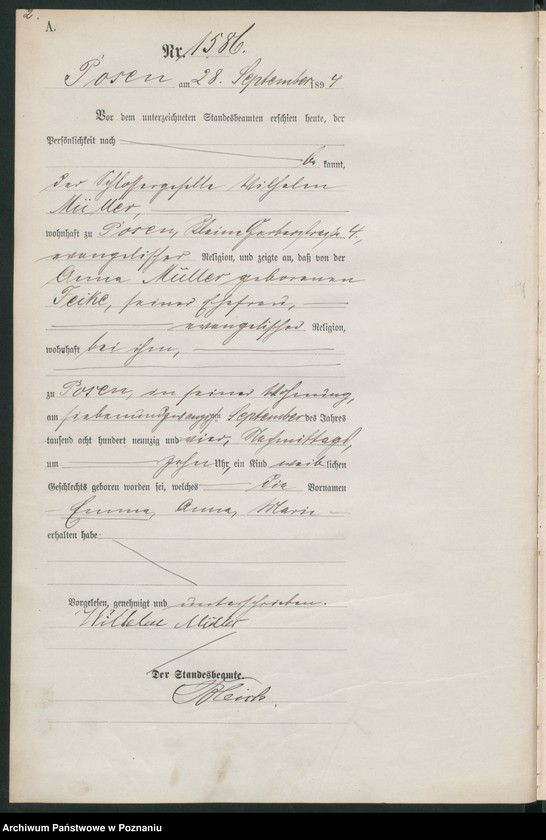 2.
A.
Nr. 1586.
Posen am 28. September 1894
Vor dem unterzeichneten Standesbeamten erschien heute, der
Persönlichkeit nach
be kannt,
der Schlossergeselle Wilhelm
Müller,
wohnhaft zu Posen, Kleine Gerberstraße 4.,
evangelischer Religion, und zeigte an, daß von der
Anna Müller geborenen
Teike, seiner Ehefrau,
evangelischer Religion,
wohnhaft bei ihm,
zu Posen, in seiner Wohnung,
am siebenundzwanzigsten September des Jahres
tausend acht hundert neunzig und vier, Nachmittags,
um zehn Uhr, ein Kind weiblichen
Geschlechts geboren worden sei, welches die Vornamen
Emma, Anna, Marie
erhalten habe.
Vorgelesen, genehmigt und unterschrieben.
Wilhelm Müller
Der Standesbeamte.
Archiwum Państwowe w Poznaniu